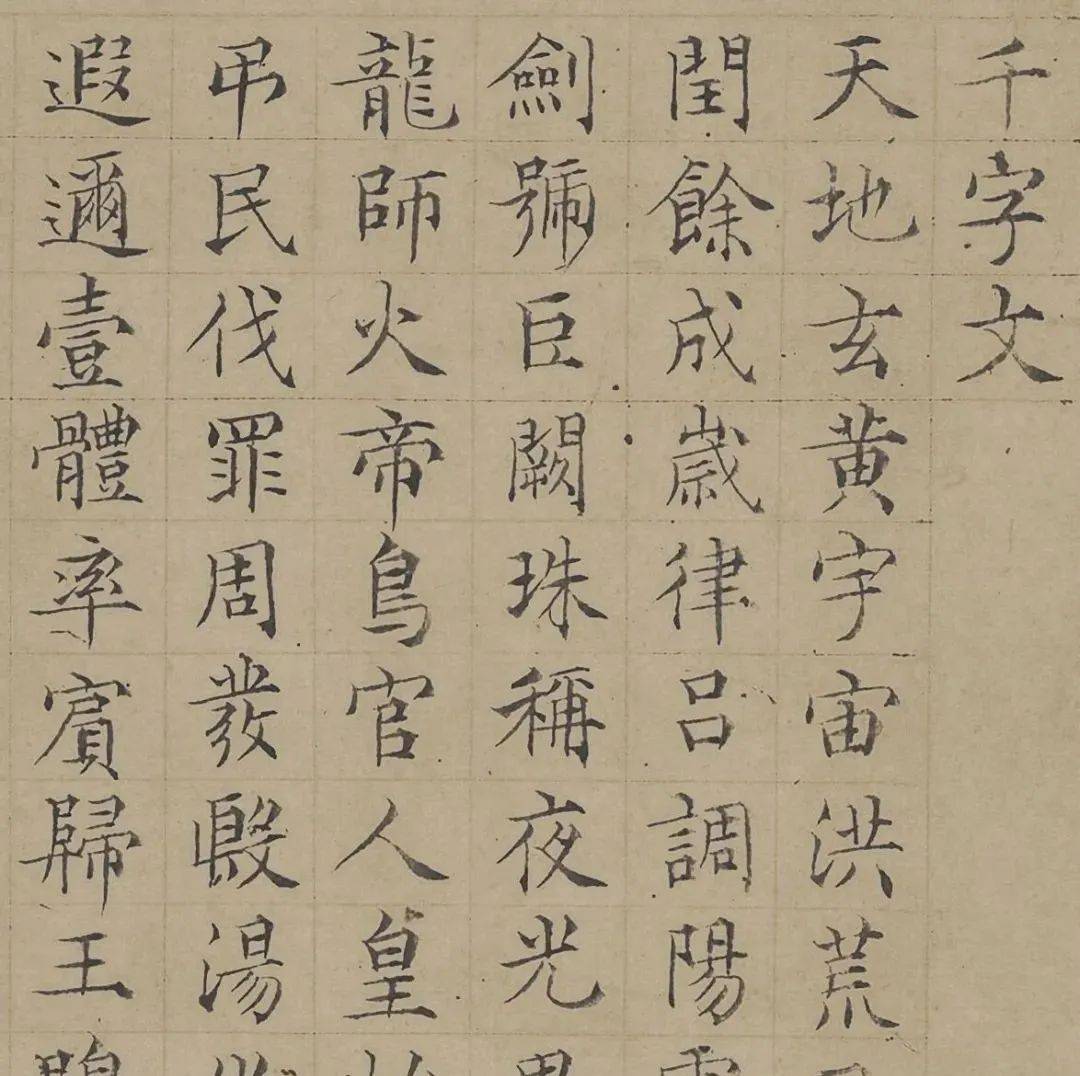 千字文
天地玄黃宇宙洪荒
閏餘成歲律吕調陽
劍號臣闕珠稱夜光
龍師火帝鳥官人皇
弔民伐罪周發殷湯
遐邇壹體率賓歸王